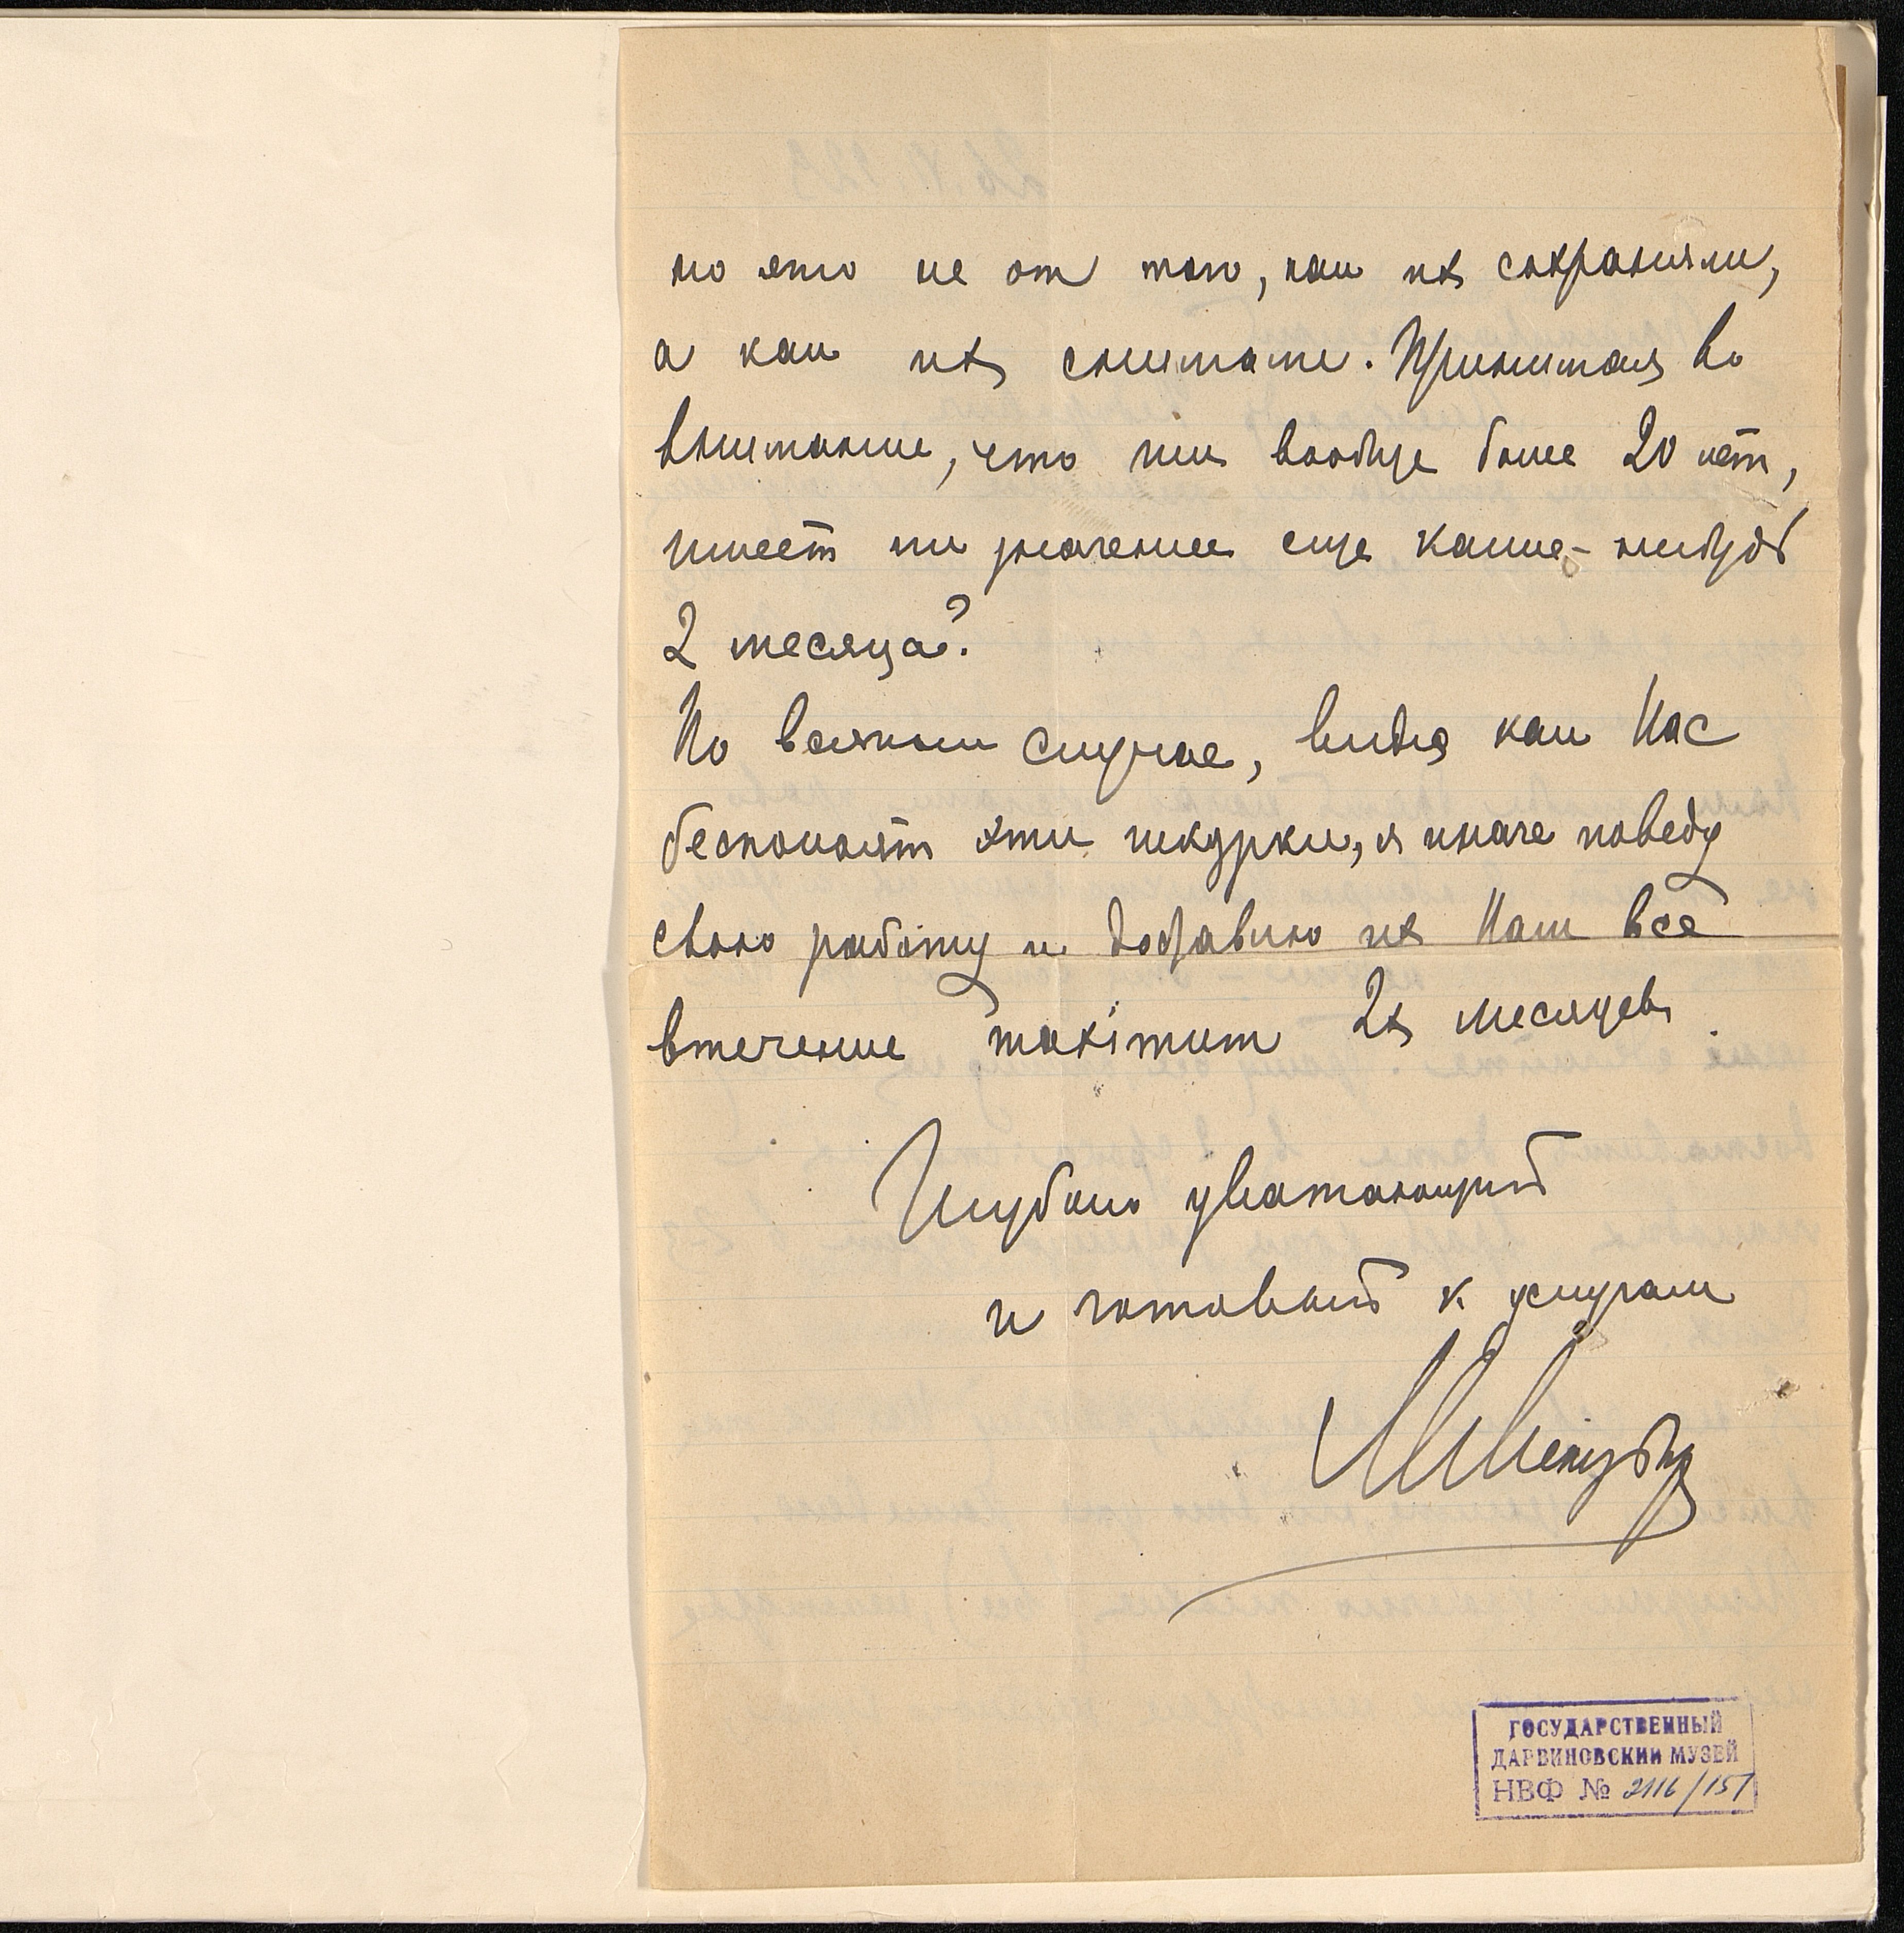 но это не от того, как их сохраняли,
а как их снимали. Принимая во
внимание, что им вообще более 20 лет,
имеет ли значение еще какие-нибудь
2 месяца?
Во всяком случае, видя как Вас
беспокоят эти шкурки, я иначе поведу
свою работу и доставлю их Вам все
втечение maximum 2х месяцев.
Глубоко уважающий
и готовый к услугам
ГОСУДАРСТВЕННЫЙ
ДАРВИНОВСКИЙ МУЗЕЙ
НВФ № 2116/151